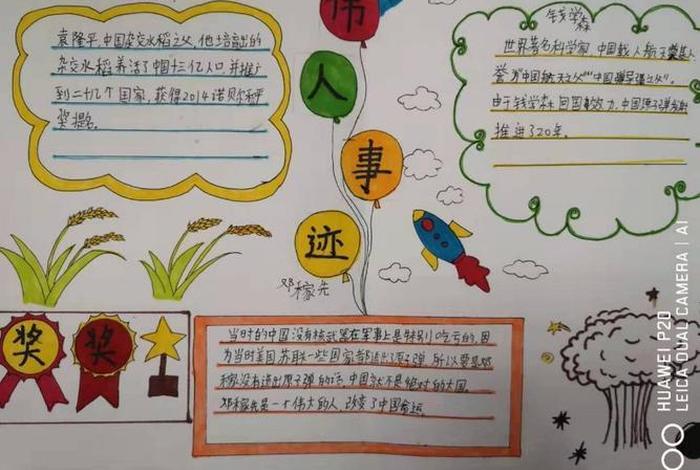 伟
人
事
迹
袁隆平,中国杂交水稻之父,他培育的
杂交水稻养活了中国十三亿人口,并推广
到二十几个国家,获得2014诺贝尔和平
奖提名。
钱学森
世界著名科学家,中国载人航天奠基人
誉为"中国航天之父""中国导弹之父"。
由于钱学森回国效力,中国原子弹发射
推进了20年。
邓稼先
当时的中国没有核武器在军事上是特别吃亏的,因
为当时美国苏联一些国家都造出了原子弹 所以要是邓
稼先没有造出原子弹的话,中国就不是绝对的大国。
邓稼先是一个伟大的人,改变了中国命运。
奖
奖
HUAWEI P20
LEICA DUAL CAMERA | AI